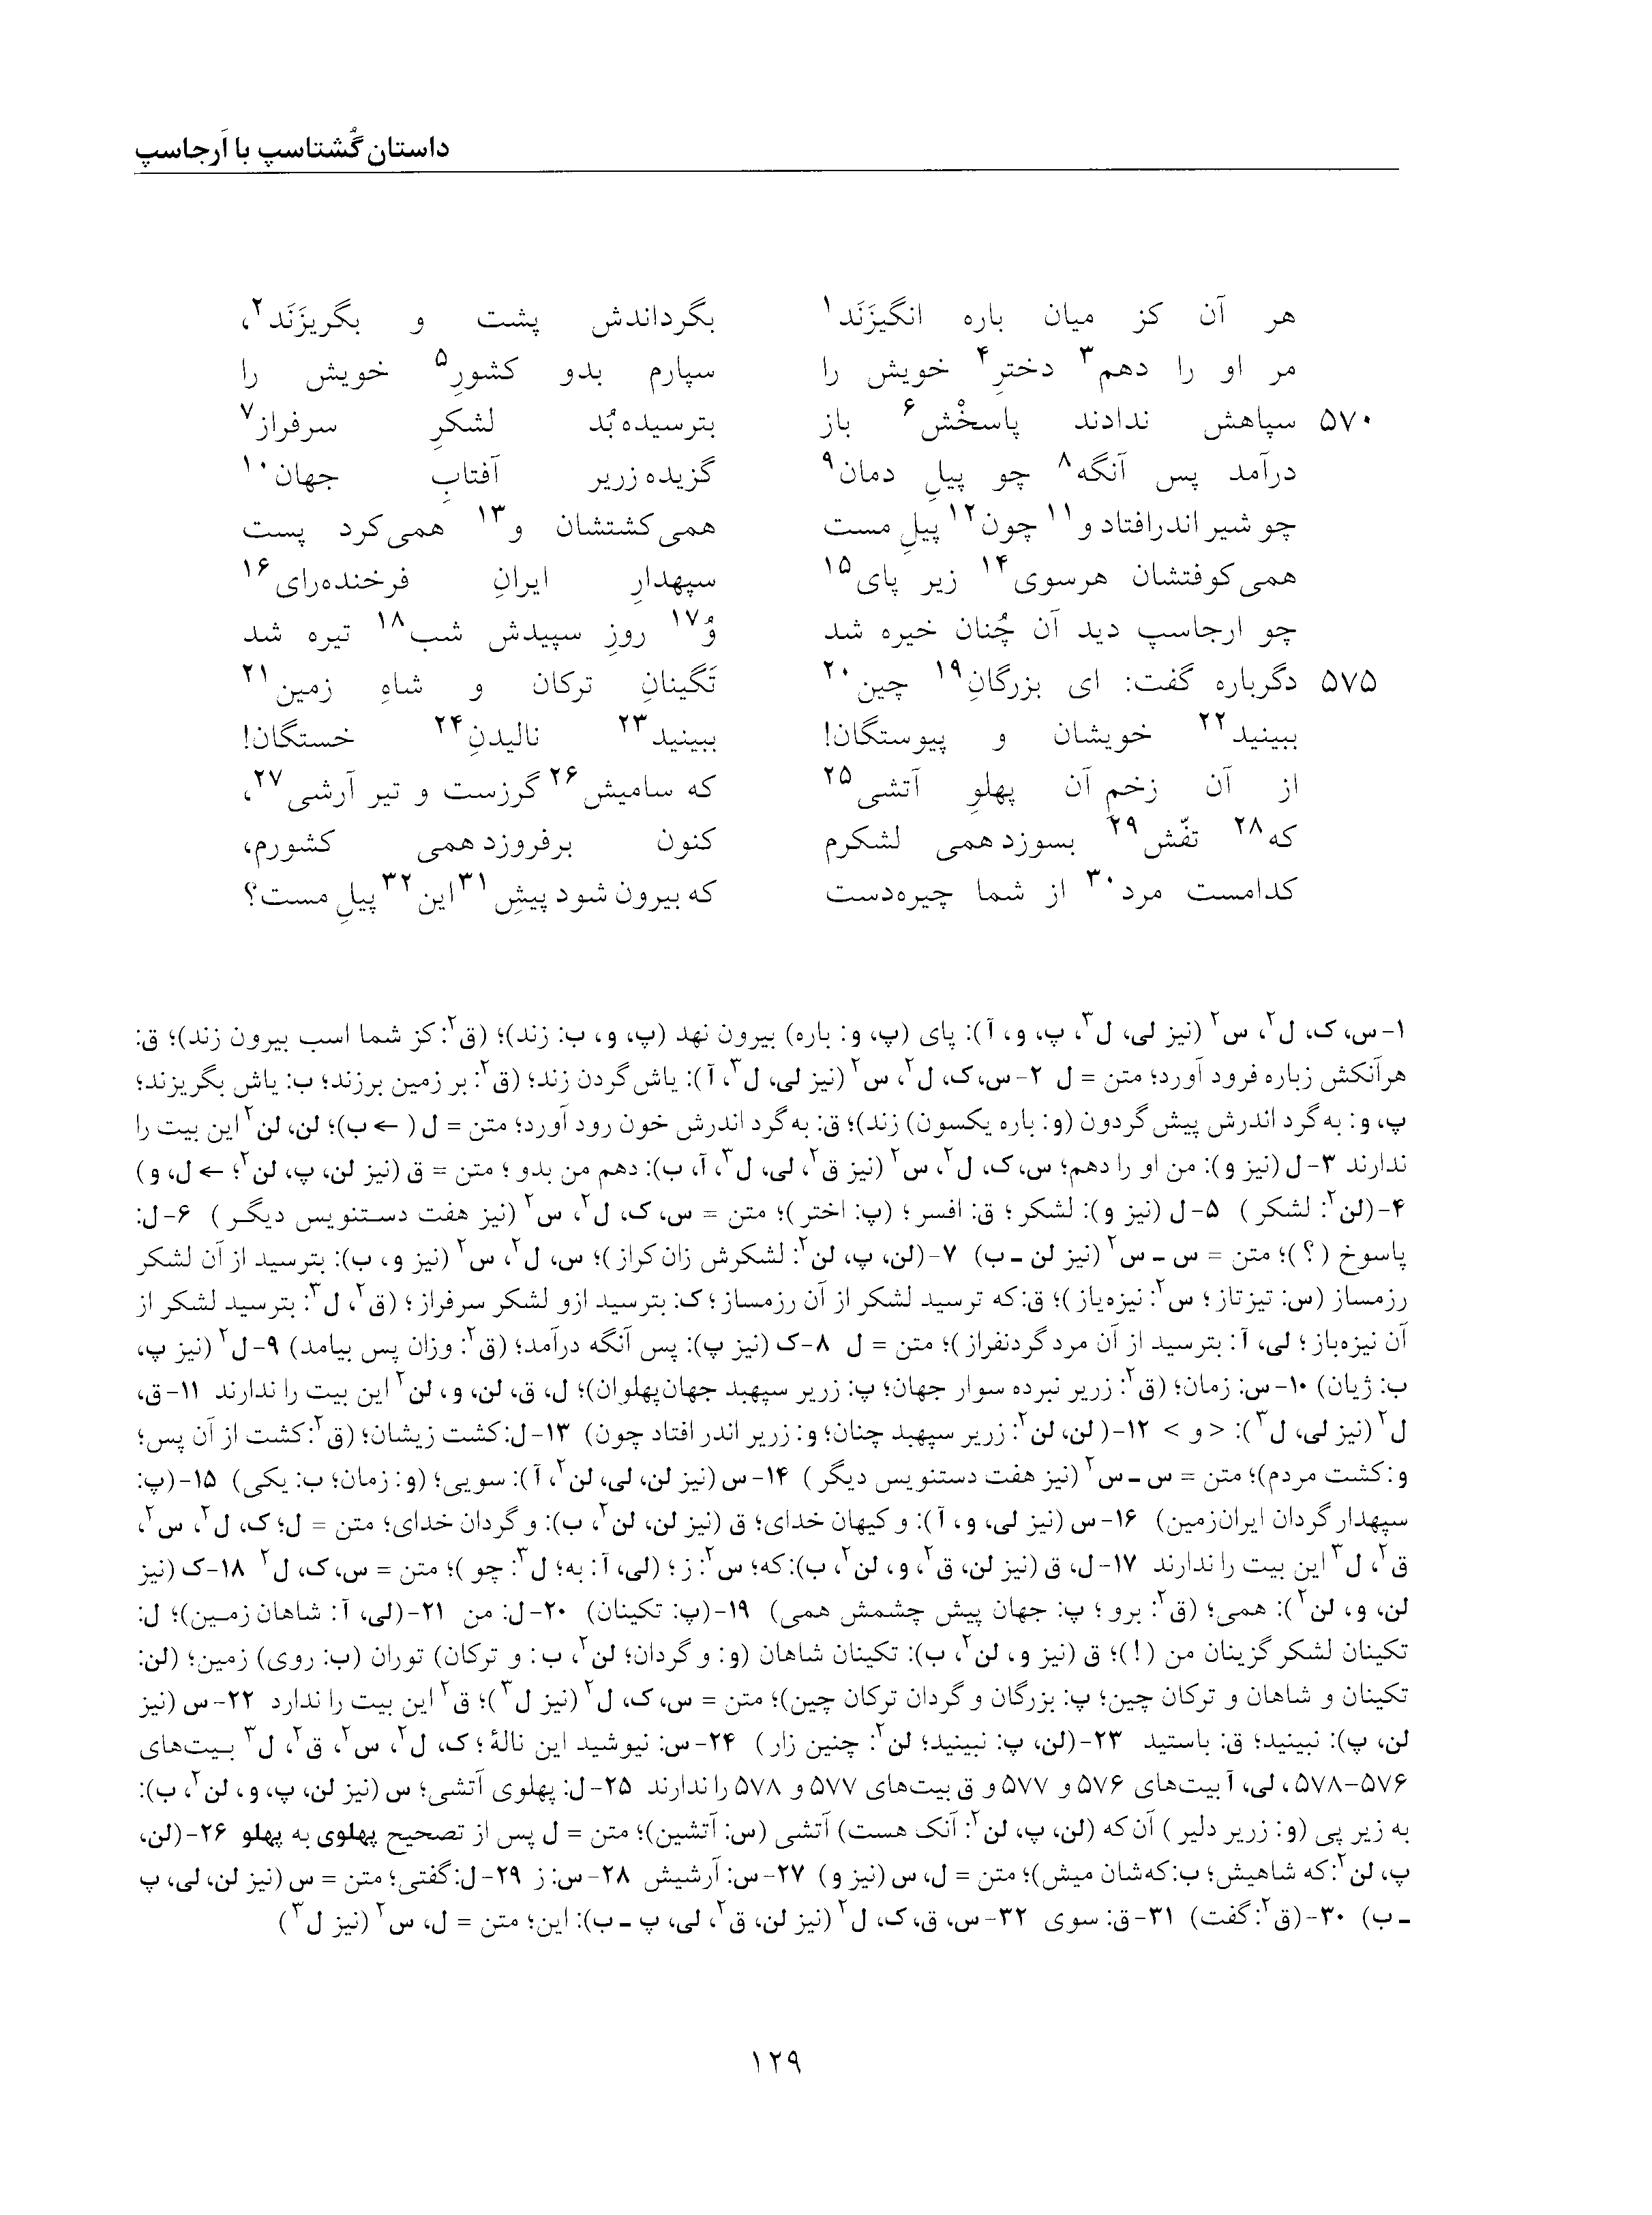 داستان گُشتاسپ با اَرجاسپ
هر آن کز میان باره انگیزَنَد۱ بگرداندش پشت و بگریزَنَد۲،
مر او را دهم۳ دخترِ۴ خویش را سپارم بدو کشورِ۵ خویش را
۵۷۰ سپاهش ندادند پاسخْش۶ باز بترسیده بُد لشکرِ سرفراز۷
درآمد پس آنگه۸ چو پیلِ دمان۹ گزیده زریر آفتابِ جهان۱۰
چو شیر اندرافتاد و۱۱ چون۱۲ پیلِ مست همی‌کشتشان و۱۳ همی‌کرد پست
همی‌کوفتشان هرسوی۱۴ زیر پای۱۵ سپهدارِ ایرانِ فرخنده‌رای۱۶
چو ارجاسپ دید آن چُنان خیره شد وُ۱۷ روزِ سپیدش شب۱۸ تیره شد
۵۷۵ دگرباره گفت: ای بزرگانِ۱۹ چین۲۰ تَگینانِ ترکان و شاهِ زمین۲۱
ببینید۲۲ خویشان و پیوستگان! ببینید۲۳ نالیدنِ۲۴ خستگان!
از آن زخمِ آن پهلوِ آتشی۲۵ که سامیش۲۶ گرزست و تیر آرشی۲۷،
که۲۸ تفّش۲۹ بسوزد همی لشکرم کنون برفروزد همی کشورم،
کدامست مرد۳۰ از شما چیره‌دست که بیرون شود پیشِ۳۱ این۳۲ پیلِ مست؟
۱-س، ک، ل۲، س۲ (نیز لی، ل۳، پ، و، آ): پای (پ، و: باره) بیرون نهد (پ، و، ب: زند)؛ (ق۲: کز شما اسب بیرون زند)؛ ق:
هرآنکش زباره فرود آورد؛ متن = ل ۲-س، ک، ل۲، س۲ (نیز لی، ل۳، آ): یاش گردن زند؛ (ق۲: بر زمین برزند؛ ب: یاش بگریزند؛
پ، و: به گرد اندرش پیش گردون (و: باره یکسون) زند)؛ ق: به گرد اندرش خون رود آورد؛ متن = ل (← ب)؛ لن، لن۲ این بیت را
ندارند ۳-ل (نیز و): من او را دهم؛ س، ک، ل۲، س۲ (نیز ق۲، لی، ل۳، آ، ب): دهم من بدو؛ متن = ق (نیز لن، پ، لن۲؛ ← ل، و)
۴-(لن۲: لشکر) ۵-ل (نیز و): لشکر؛ ق: افسر؛ (پ: اختر)؛ متن = س، ک، ل۲، س۲ (نیز هفت دستنویس دیگر) ۶-ل:
پاسوخ (؟)؛ متن = س ـ س۲ (نیز لن ـ ب) ۷-(لن، پ، لن۲: لشکرش زان کراز)؛ س، ل۲، س۲ (نیز و، ب): بترسید از آن لشکر
رزمساز (س: تیزتاز؛ س۲: نیزه‌یاز)؛ ق: که ترسید لشکر از آن رزمساز؛ ک: بترسید ازو لشکر سرفراز؛ (ق۲، ل۳: بترسید لشکر از
آن نیزه‌باز؛ لی، آ: بترسید از آن مرد گردنفراز)؛ متن = ل ۸-ک (نیز پ): پس آنگه درآمد؛ (ق۲: وزان پس بیامد) ۹-ل۲ (نیز پ،
ب: ژیان) ۱۰-س: زمان؛ (ق۲: زریر نبرده سوار جهان؛ پ: زریر سپهبد جهان‌پهلوان)؛ ل، ق، لن، و، لن۲ این بیت را ندارند ۱۱-ق،
ل۲ (نیز لی، ل۳): <و> ۱۲-(لن، لن۲: زریر سپهبد چنان؛ و: زریر اندر افتاد چون) ۱۳-ل: کشت زیشان؛ (ق۲: کشت از آن پس؛
و: کشت مردم)؛ متن = س ـ س۲ (نیز هفت دستنویس دیگر) ۱۴-س (نیز لن، لی، لن۲، آ): سویی؛ (و: زمان؛ ب: یکی) ۱۵-(پ:
سپهدار گردان ایران‌زمین) ۱۶-س (نیز لی، و، آ): و کیهان خدای؛ ق (نیز لن، لن۲، ب): و گردان خدای؛ متن = ل؛ ک، ل۲، س۲،
ق۲، ل۳ این بیت را ندارند ۱۷-ل، ق (نیز لن، ق۲، و، لن۲، ب): که؛ س۲: ز؛ (لی، آ: به؛ ل۳: چو)؛ متن = س، ک، ل۲ ۱۸-ک (نیز
لن، و، لن۲): همی؛ (ق۲: برو؛ پ: جهان پیش چشمش همی) ۱۹-(پ: تکینان) ۲۰-ل: من ۲۱-(لی، آ: شاهان زمین)؛ ل:
تکینان لشکر گزینان من (!)؛ ق (نیز و، لن۲، ب): تکینان شاهان (و: و گردان؛ لن۲، ب: و ترکان) توران (ب: روی) زمین؛ (لن:
تکینان و شاهان و ترکان چین؛ پ: بزرگان و گردان ترکان چین)؛ متن = س، ک، ل۲ (نیز ل۳)؛ ق۲ این بیت را ندارد ۲۲-س (نیز
لن، پ): نبینید؛ ق: باستید ۲۳-(لن، پ: نبینید؛ لن۲: چنین زار) ۲۴-س: نیوشید این نالهٔ؛ ک، ل۲، س۲، ق۲، ل۳ بیت‌های
۵۷۶-۵۷۸، لی، آ بیت‌های ۵۷۶ و ۵۷۷ و ق بیت‌های ۵۷۷ و ۵۷۸ را ندارند ۲۵-ل: پهلوی آتشی؛ س (نیز لن، پ، و، لن۲، ب):
به زیر پی (و: زریر دلیر) آن که (لن، پ، لن۲: آنک هست) آتشی (س: آتشین)؛ متن = ل پس از تصحیح پهلوی به پهلو ۲۶-(لن،
پ، لن۲: که شاهیش؛ ب: که‌شان میش)؛ متن = ل، س (نیز و) ۲۷-س: آرشیش ۲۸-س: ز ۲۹-ل: گفتی؛ متن = س (نیز لن، لی، پ
ـ ب) ۳۰-(ق۲: گفت) ۳۱-ق: سوی ۳۲-س، ق، ک، ل۲ (نیز لن، ق۲، لی، پ ـ ب): این؛ متن = ل، س۲ (نیز ل۳)
۱۲۹